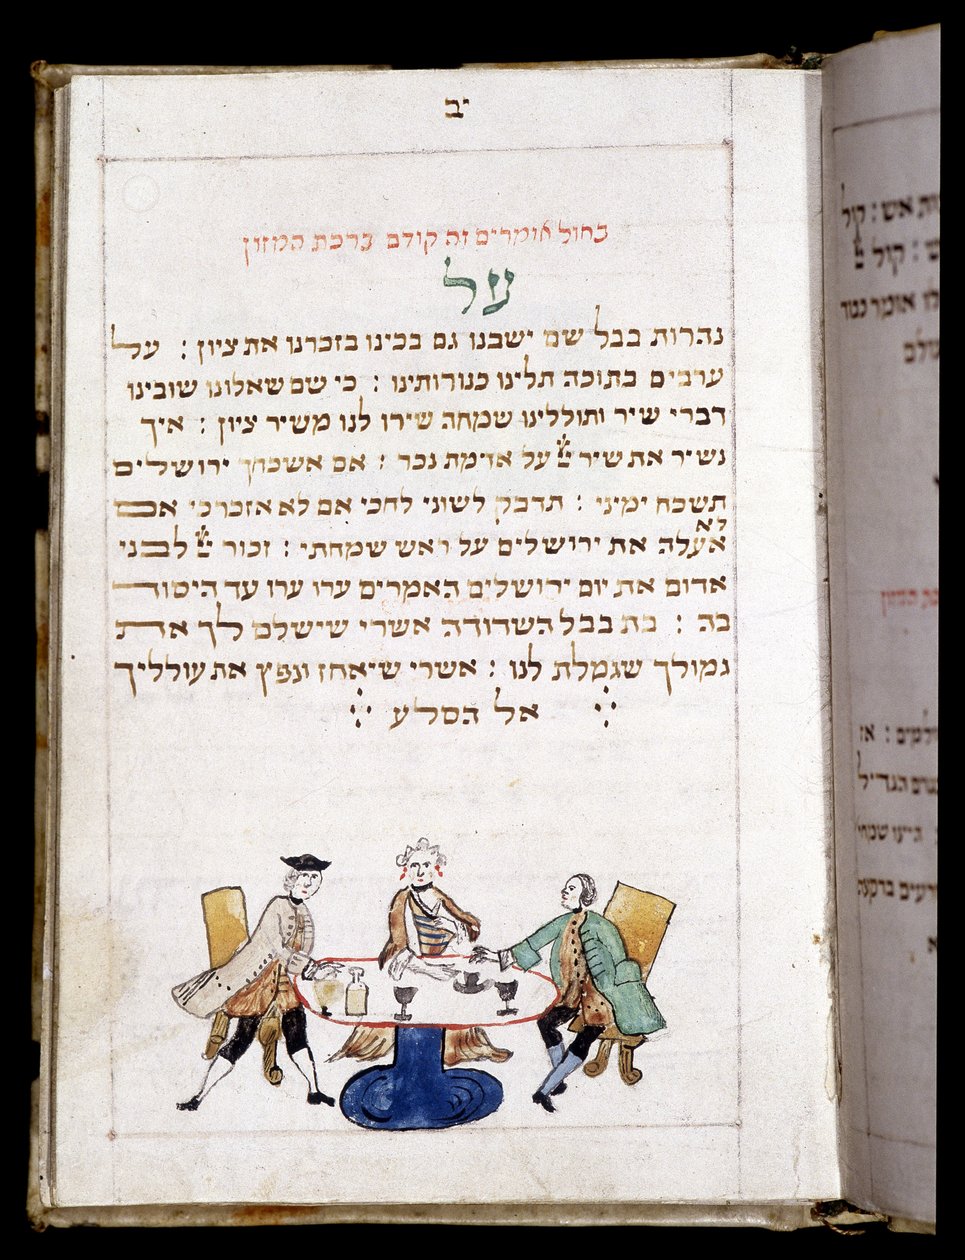 יב
בחול אומרים זה קודם ברכת המזון
על
נהרות בבל שם ישבנו גם בכינו בזכרנו את ציון : על
ערבים בתוכה תלינו כנורותינו : כי שם שאלונו שובינו
דברי שיר ותוללינו שמחה שירו לנו משיר ציון : איך
נשיר את שיר על אדמת נכר : אם אשכחך ירושלים
תשכח ימיני : תדבק לשוני לחכי אם לא אזכרכי אם
לא
אעלה את ירושלים על ראש שמחתי : זכור לבני
אדום את יום ירושלים האמרים ערו ערו עד היסוד
בה : בת בבל השדודה אשרי שישלם לך את
גמולך שגמלת לנו : אשרי שיאחז ונפץ את עולליך
אל הסלע
אש : קול
: קול
אומר כגוד
: אז